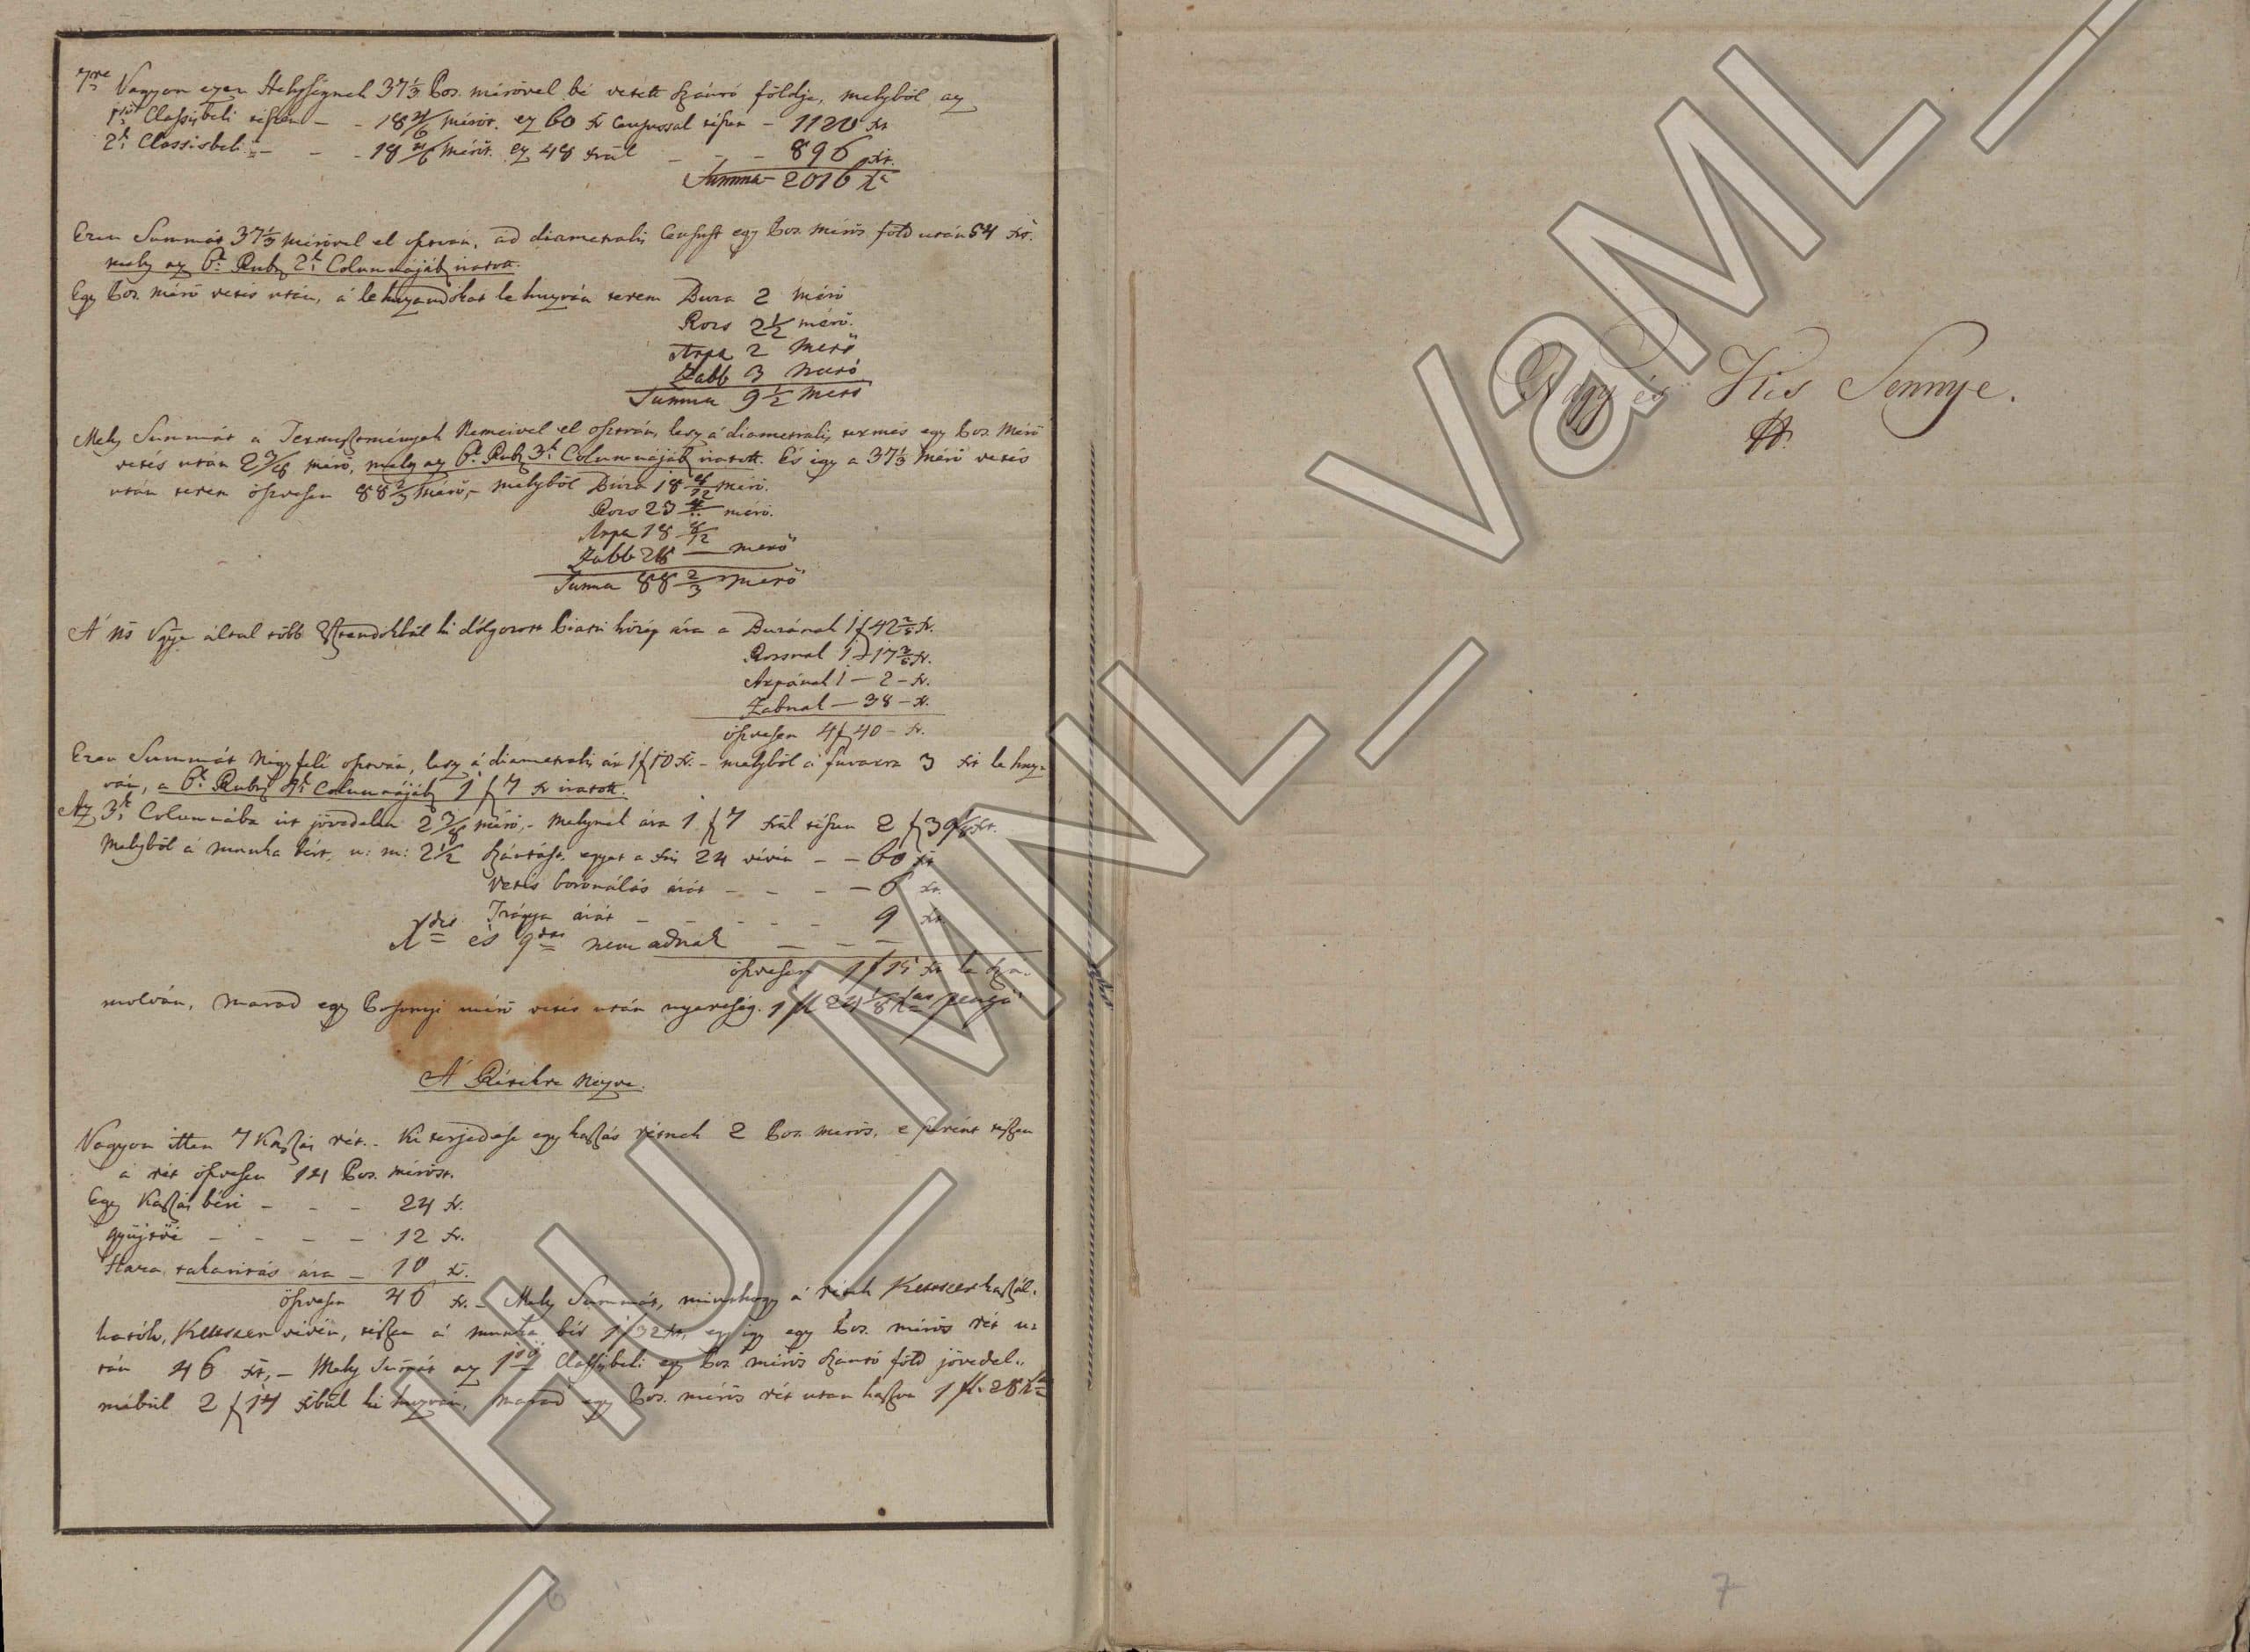 7re Vagyon ezen Helységnek 37 1/3 Pos. mérővel bé vetett Szántó földje, melyből az
1ső Classisbeli tészen - - 18 4/6 mérőt. ez 60 xr Censussal tészen - 1120 xr
2k Classisbeli - - - 18 4/6 mérőt. ez 48 xrúl - - - 896 xr.
Summa - 2016 xr
Ezen Summát 37 1/3 mérővel el osztván, ad diametralis Censust egy Pos. mérős föld után 54 xr.
mely az 6k Rubr. 2k Columnájába iratott.
Egy Pos. mérő vetés után, á lehuzandókat le huzván terem Buza 2 mérő
Rozs 2 1/2 mérő.
Arpa 2 Merő
Zabb 3 Merő
Summa 9 1/2 Merő
Mely Summát a Termesztmények Nemeivel el osztván, lesz á diametralis termés egy Pos. Mérő
vetés után 2 3/8 mérő, mely az 6k Rubr. 3k Columnájába iratott. És igy a 37 1/3 Mérő vetés
után terem öszvesen 88 2/3 Mérő, - melyből Búza 18 8/12 mérő.
Rozs 23 4/12 mérő.
Arpa 18 8/12
Zabb 28 — merő
Suma 88 2/3 merő
A' Nő Vgye által több Esztendőkbül ki dólgozott Piatzi közép ára a Buzának 1 f 42 2/5 xr.
Rozsnak 1 - 17 3/5 xr.
Arpának 1 — 2 - xr.
Zabnak — 38 - xr.
öszvesen 4 f 40 - xr.
Ezen Summát Négyfelé osztván, lesz á diametralis ár 1 f 10 xr. - melyből á fuvarra 3 xrt le huz-
ván, a 6k Rubr. 4k Columnájába 1 f 7 xr iratott.
Az 3k Columnába irt jövedelem 2 3/8 mérő, - melynek ára 1 f 7 xrúl tészen 2 f 39 1/8 xrt.
Melyből á munka bért, u: m: 2 1/2 Szántást, egyet a fr 24 vévén - - 60 xr
Vetés boronálás árát - - - - 6 xr.
Trágya árát - - - - - 9 xr.
Xdet és 9det nem adnak - - -
öszvesen 1 f 15 xr le szá-
molván, marad egy Posonyi mérő vetés után nyereség. 1 fl 24 1/8 xras pengő
A' Rétekre Nézve.
Vagyon itten 7 Kaszás rét. - Ki terjedése egy kaszás rétnek 2 Pos. merős, e szerént tészen
á rét öszvesen 14 Pos. mérőst.
Egy Kaszás béri - - - 24 xr.
gyüjtői - - - - 12 xr.
Haza takaritás ára - 10 xr.
öszvesen 46 xr. - Mely Summát, minthogy á rétek Kettszer kaszál-
hatók, Kettszer vévén, tészen á munka bér 1 f 32 xr, egy igy egy Pos. mérős rét u-
tán 46 xr, - Mely Sumát az 1ső Classisbeli egy Pos. mérős Szántó föld jövedel-
mébül 2 f 14 xrbúl ki huzván, marad egy Pos. mérős rét utan haszon 1 fl. 28 xr
Nagy és Kis Sennye.
6
7